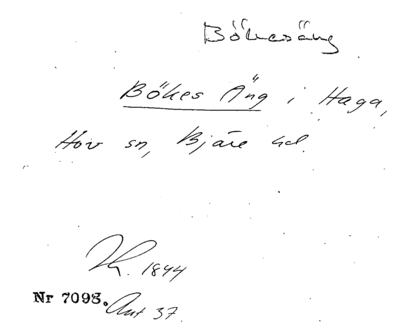 Bökesäng
Bökes Äng i Haga,
Hov sn, Bjäre hd.
1844
Nr 7098. Ant 37.